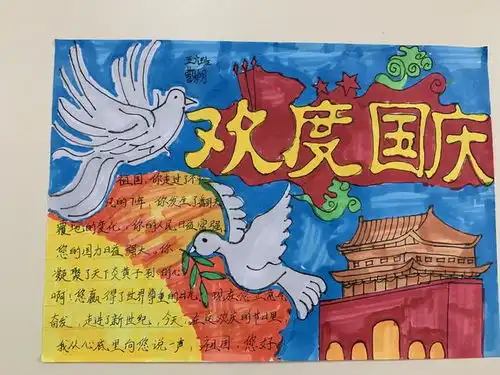 五六班
欢度国庆
祖国,你走过环
的7年,你发生了翻天
覆地的变化,你的人民日益坚强
您的国力日益 天,你
凝聚了天下炎黄子孙的心
啊!您赢得了世界尊重的目光 现在您正意气
奋发,走进了新世纪,今天,在这欢庆的节日里
我从心底里向您说一声,祖国,您好